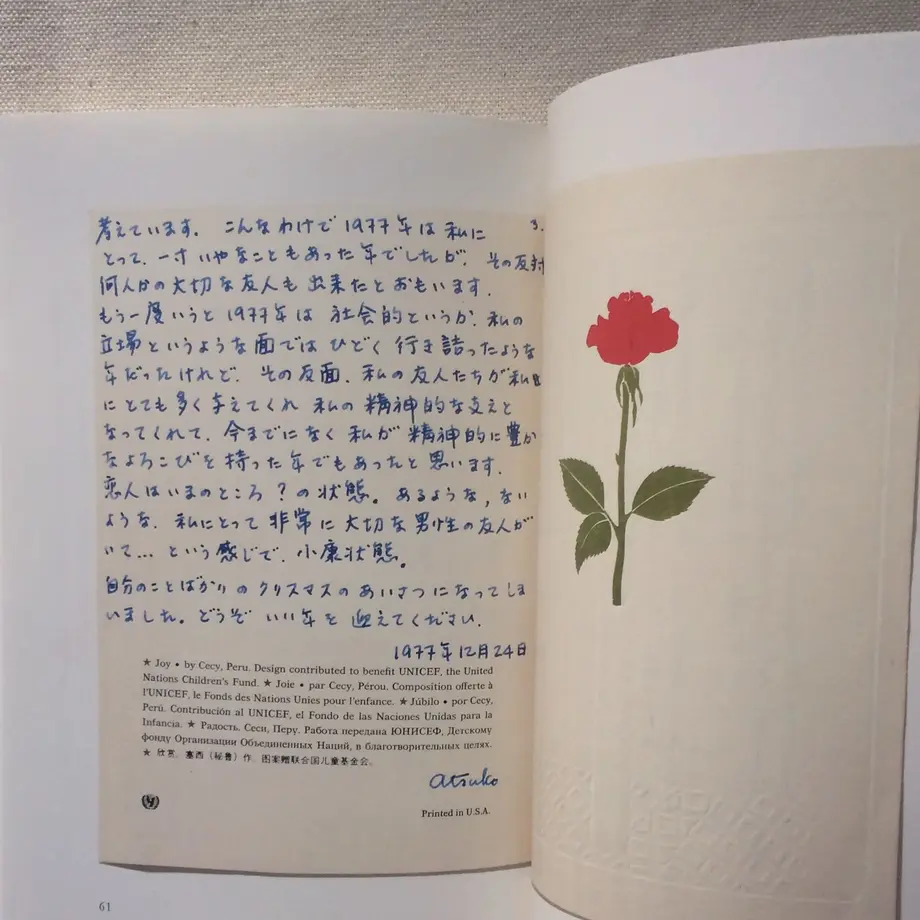 考えています。 こんなわけで 1977年は 私に
3.
とって、一寸 いやなこともあった 年でしたが、 その反対
何人かの大切な友人も 出来たとおもいます.
もう一度いうと 1977年は 社会的というか、私の
立場というような面では ひどく 行き詰ったような
年だったけれど、 その反面、私の友人たちが 私
にとても多く与えてくれ 私の 精神的な支えと
なってくれて、今までになく 私が 精神的に豊か
なよろこびを 持った年でもあったと 思います.
恋人はいまのところ ? の状態。 あるような, ない
ような、 私にとって 非常に 大切な 男性の友人が
いて... という感じで、小康状態。
自分のことばかりの クリスマスの あいさつ になってしま
いました。どうぞ いい年を 迎えてください.
1977年12月24日
★ Joy • by Cecy, Peru. Design contributed to benefit UNICEF, the United
Nations Children's Fund. ★ Joie • par Cecy, Pérou. Composition offerte à
l'UNICEF, le Fonds des Nations Unies pour l'enfance. ★ Júbilo • por Cecy,
Perú. Contribución al UNICEF, el Fondo de las Naciones Unidas para la
Infancia. ★ Радость. Сеси, Перу. Работа передана ЮНИСЕФ, Детскому
фонду Организации Объединенных Наций, в благотворительных целях.
★ 欣赏. 塞西（秘鲁）作. 图案赠联合国儿童基金会.
atsuko
Printed in U.S.A.
61